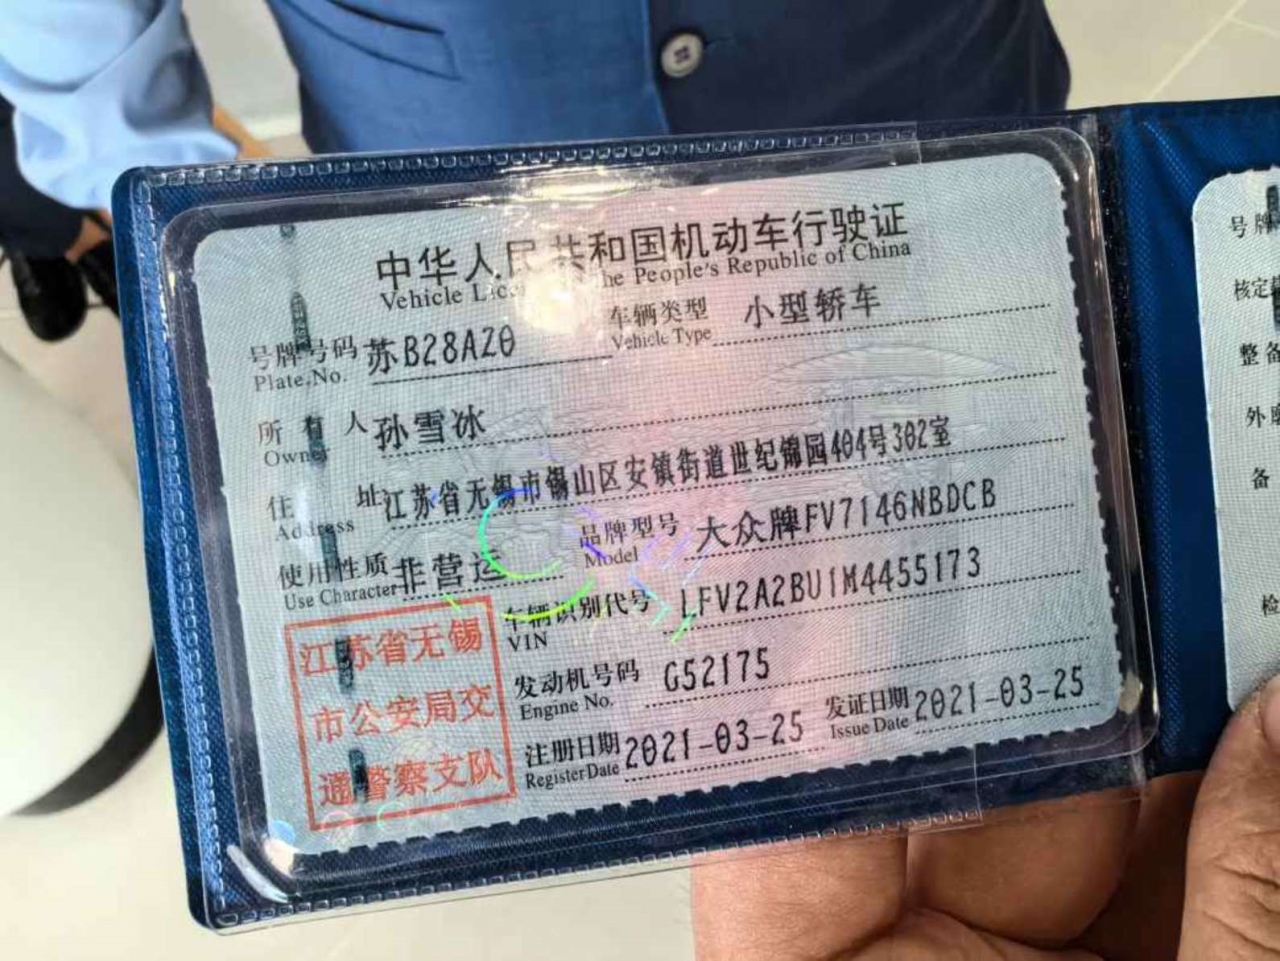 中华人民共和国机动车行驶证
Vehicle he People's Republic of China
号牌号码 苏B28AZ0 车辆类型 小型轿车
Plate No. Vehicle Type
所有人 孙雪冰
Owner
住址 江苏省无锡市锡山区安镇街道世纪锦园404号302室
Address
使用性质 非营运 品牌型号 大众牌FV7146NBDCB
Use Character Model
车辆识别代号 LFV2A2BU1M4455173
VIN
发动机号码 G52175
Engine No.
注册日期 2021-03-25 发证日期 2021-03-25
Register Date Issue Date
江苏省无锡
市公安局交
通警察支队
号牌
核定
整备
外
备
检